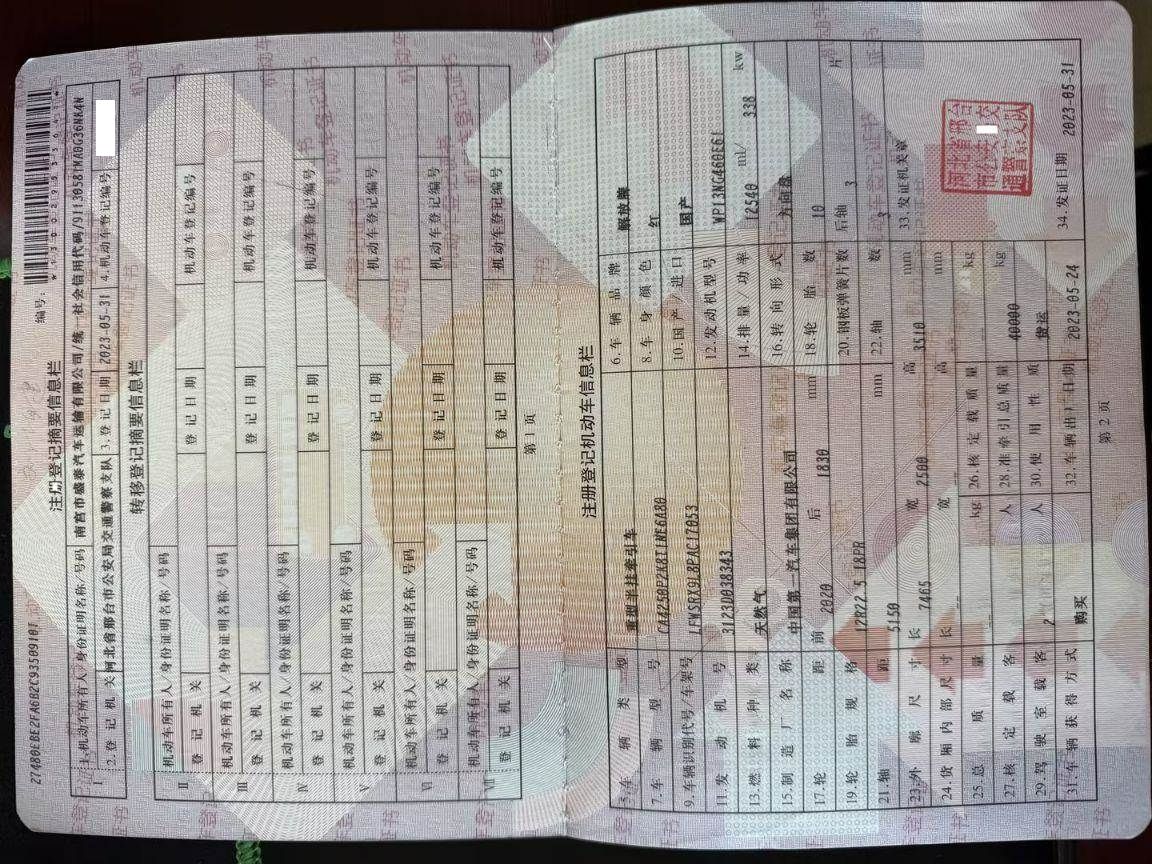 27480EBE2FA6B2C93509101
编号:
注册登记摘要信息栏
I
1.机动车所有人/身份证明名称/号码 南宫市盛泰汽车运输有限公司/统一社会信用代码/91130581MA0G36NK4N
2.登记机关 河北省邢台市公安局交通警察支队 3.登记日期 2023-05-31 4.机动车登记编号
转移登记摘要信息栏
II
机动车所有人/身份证明名称/号码
登记机关 登记日期 机动车登记编号
III
机动车所有人/身份证明名称/号码
登记机关 登记日期 机动车登记编号
IV
机动车所有人/身份证明名称/号码
登记机关 登记日期 机动车登记编号
V
机动车所有人/身份证明名称/号码
登记机关 登记日期 机动车登记编号
VI
机动车所有人/身份证明名称/号码
登记机关 登记日期 机动车登记编号
VII
机动车所有人/身份证明名称/号码
登记机关 登记日期 机动车登记编号
第 1 页
注册登记机动车信息栏
5.车辆类型 重型半挂牵引车 6.车辆品牌 解放牌
7.车辆型号 CA4250P2K8T1NE6A80 8.车身颜色 红
9.车辆识别代号/车架号 LFWSRX9L8PAC17053 10.国产/进口 国产
11.发动机号 3123D038343 12.发动机型号 WP13NG460E61
13.燃料种类 天然气 14.排量/功率 12540 ml/ 338 kw
15.制造厂名称 中国第一汽车集团有限公司 16.转向形式 方向盘
17.轮距 前 2020 后 1830 mm 18.轮胎数 10
19.轮胎规格 12R22.5 18PR 20.钢板弹簧片数 后轴 3 片
21.轴距 5150 mm 22.轴数 3
23.外廓尺寸 长 7465 宽 2500 高 3510 mm 33.发证机关章
24.货厢内部尺寸 长 -- 宽 -- 高 -- mm
25.总质量 -- kg 26.核定载质量 -- kg
27.核定载客 -- 人 28.准牵引总质量 40000 kg
29.驾驶室载客 2 人 30.使用性质 货运
31.车辆获得方式 购买 32.车辆出厂日期 2023-05-24 34.发证日期 2023-05-31
第 2 页